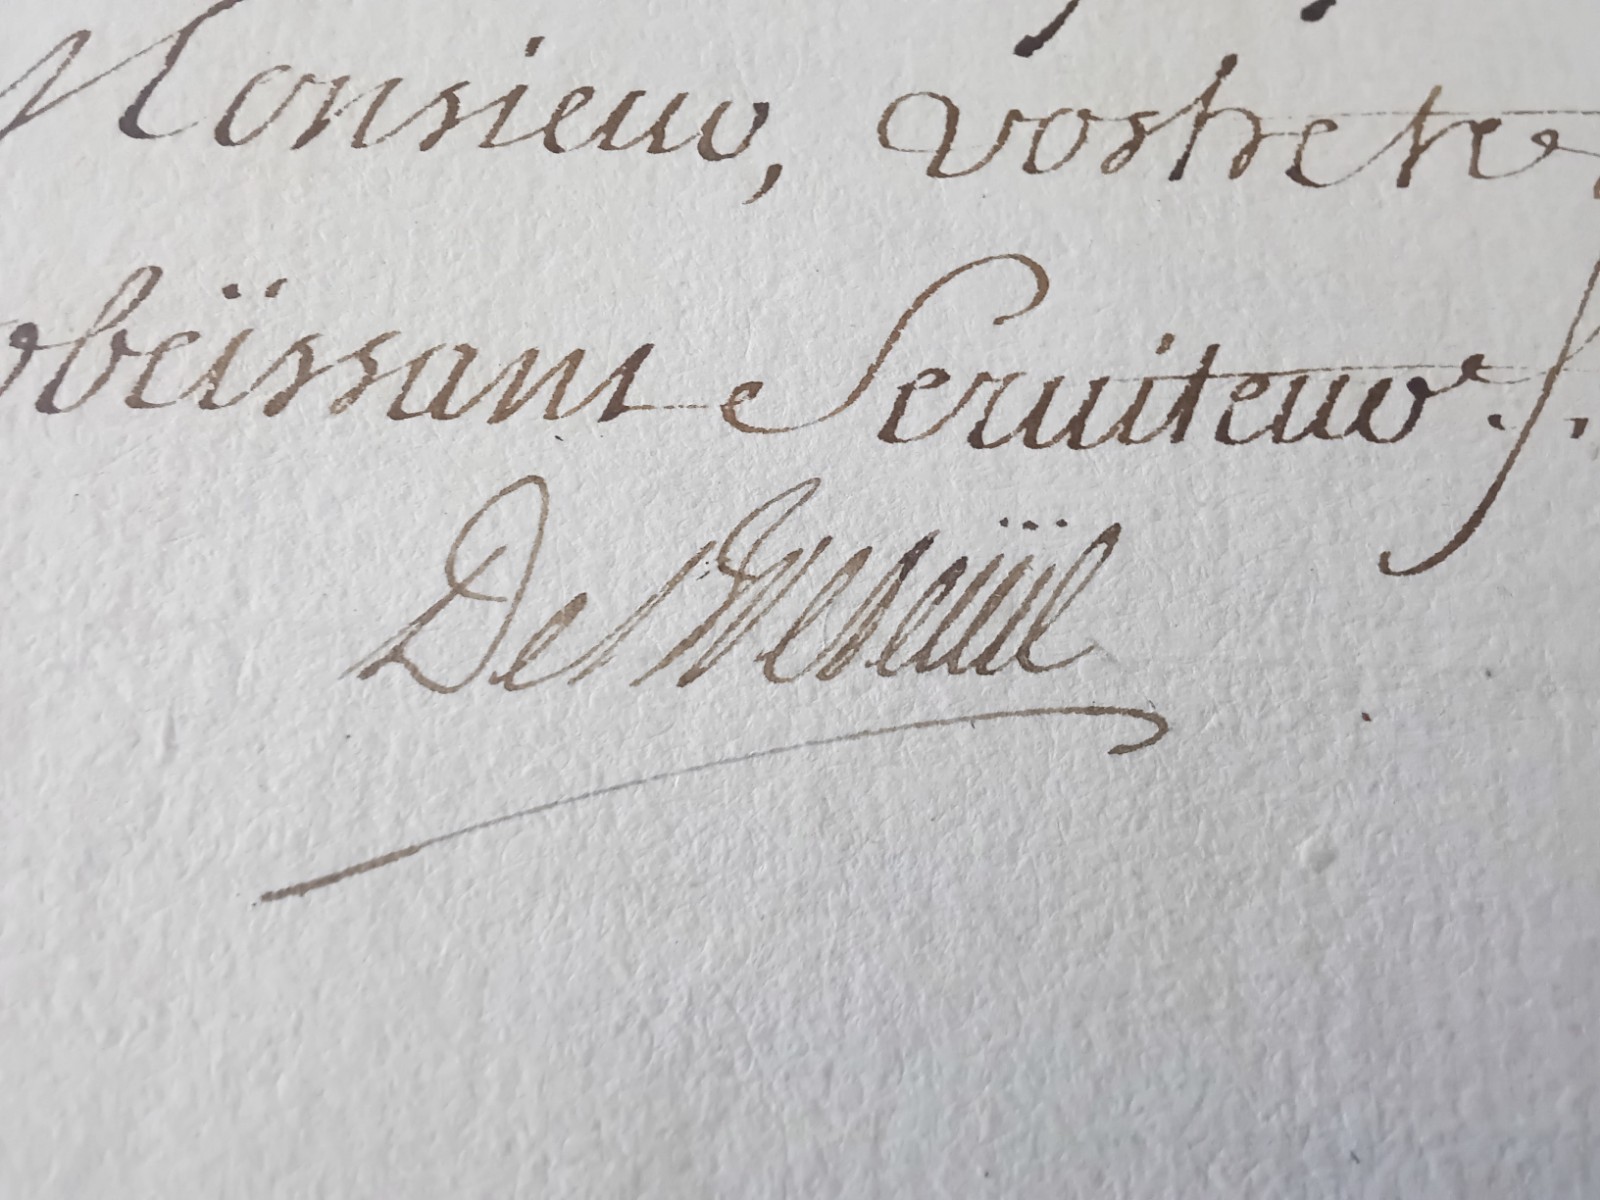 Monsieur, vostre tre
obeïssant Seruiteur.
De Breteüil